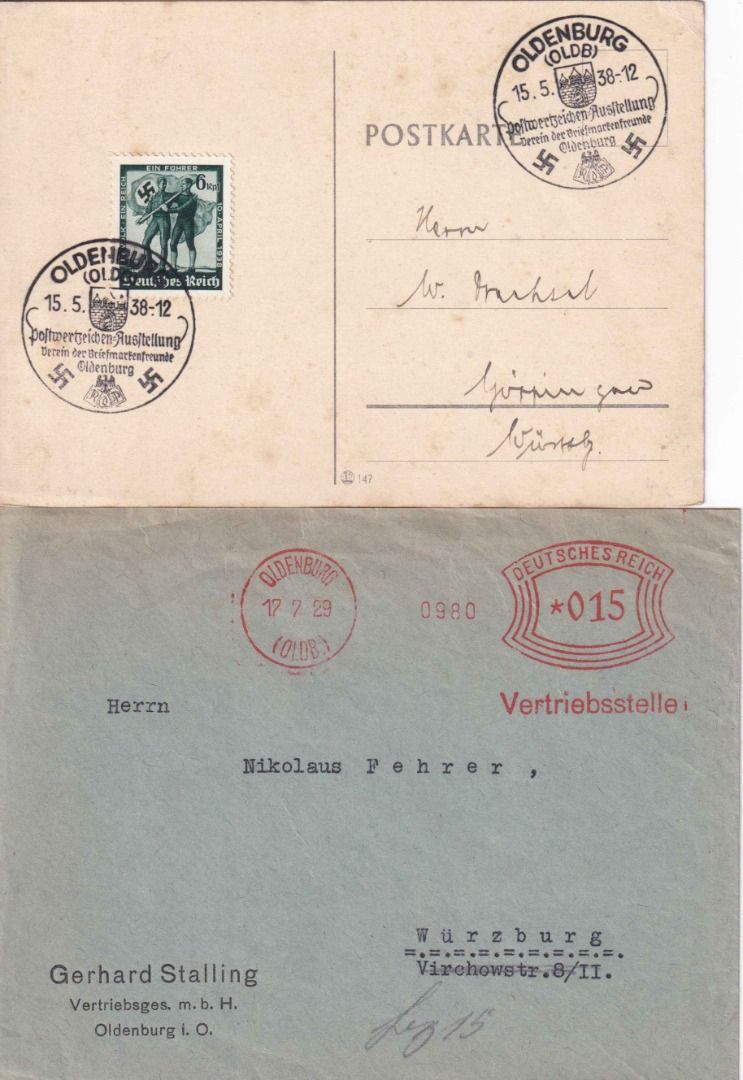 OLDENBURG
(OLDB)
15.5. 38-12
Postwertzeichen-Ausstellung
Verein der Briefmarkenfreunde
Oldenburg
POSTKARTE
EIN VOLK · EIN REICH
EIN FÜHRER
10. APRIL 1938
6 Rpf
Deutsches Reich
OLDENBURG
(OLDB)
15.5. 38-12
Postwertzeichen-Ausstellung
Verein der Briefmarkenfreunde
Oldenburg
Herrn
W. Drechsel
Göppingen
147
OLDENBURG
17 7 29
(OLDB)
0980
DEUTSCHES REICH
*015
Vertriebsstelle
Herrn
Nikolaus Fehrer,
Würzburg
Virchowstr.8/II.
Gerhard Stalling
Vertriebsges. m. b. H.
Oldenburg i. O.
15